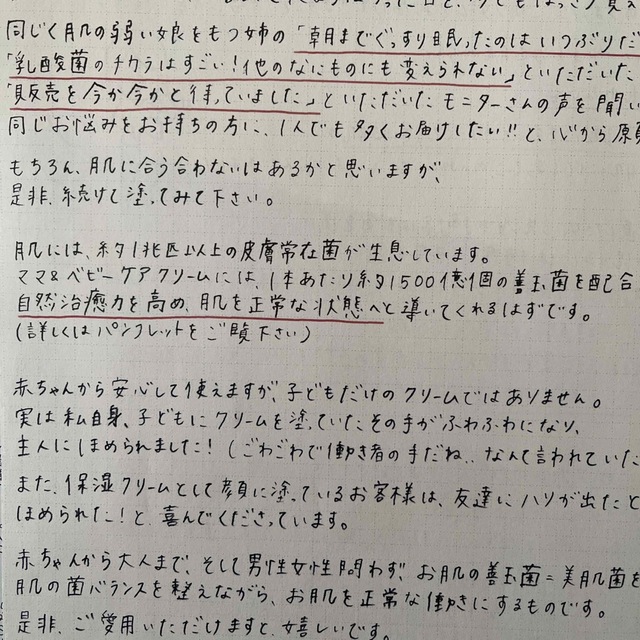 同じく肌の弱い娘をもつ姉の「朝までぐっすり眠ったのはいつぶりだ
「乳酸菌のチカラはすごい！他のなにものにも変えられない」といただいた
「販売を今か今かと待っていました」といただいたモニターさんの声を聞い
同じお悩みをお持ちの方に、1人でも多くお届けしたい!!と、心から原
もちろん、肌に合う合わないはあるかと思いますが、
是非、続けて塗ってみて下さい。
肌には、約1兆匹以上の皮膚常在菌が生息しています。
ママ&ベビーケアクリームには、1本あたり約1500億個の善玉菌を配合
自然治癒力を高め、肌を正常な状態へと導いてくれるはずです。
(詳しくはパンフレットをご覧下さい)
赤ちゃんから安心して使えますが、子どもだけのクリームではありません。
実は私自身、子どもにクリームを塗っていたその手がふわふわになり、
主人にほめられました！(ごわごわで働き者の手だね..なんて言われていた
また、保湿クリームとして顔に塗っているお客様は、友達にハリが出たと
ほめられた！と、喜んでくださっています。
赤ちゃんから大人まで、そして男性女性問わず、お肌の善玉菌=美肌菌を
肌の菌バランスを整えながら、お肌を正常な働きにするものです。
是非、ご愛用いただけますと、嬉しいです。